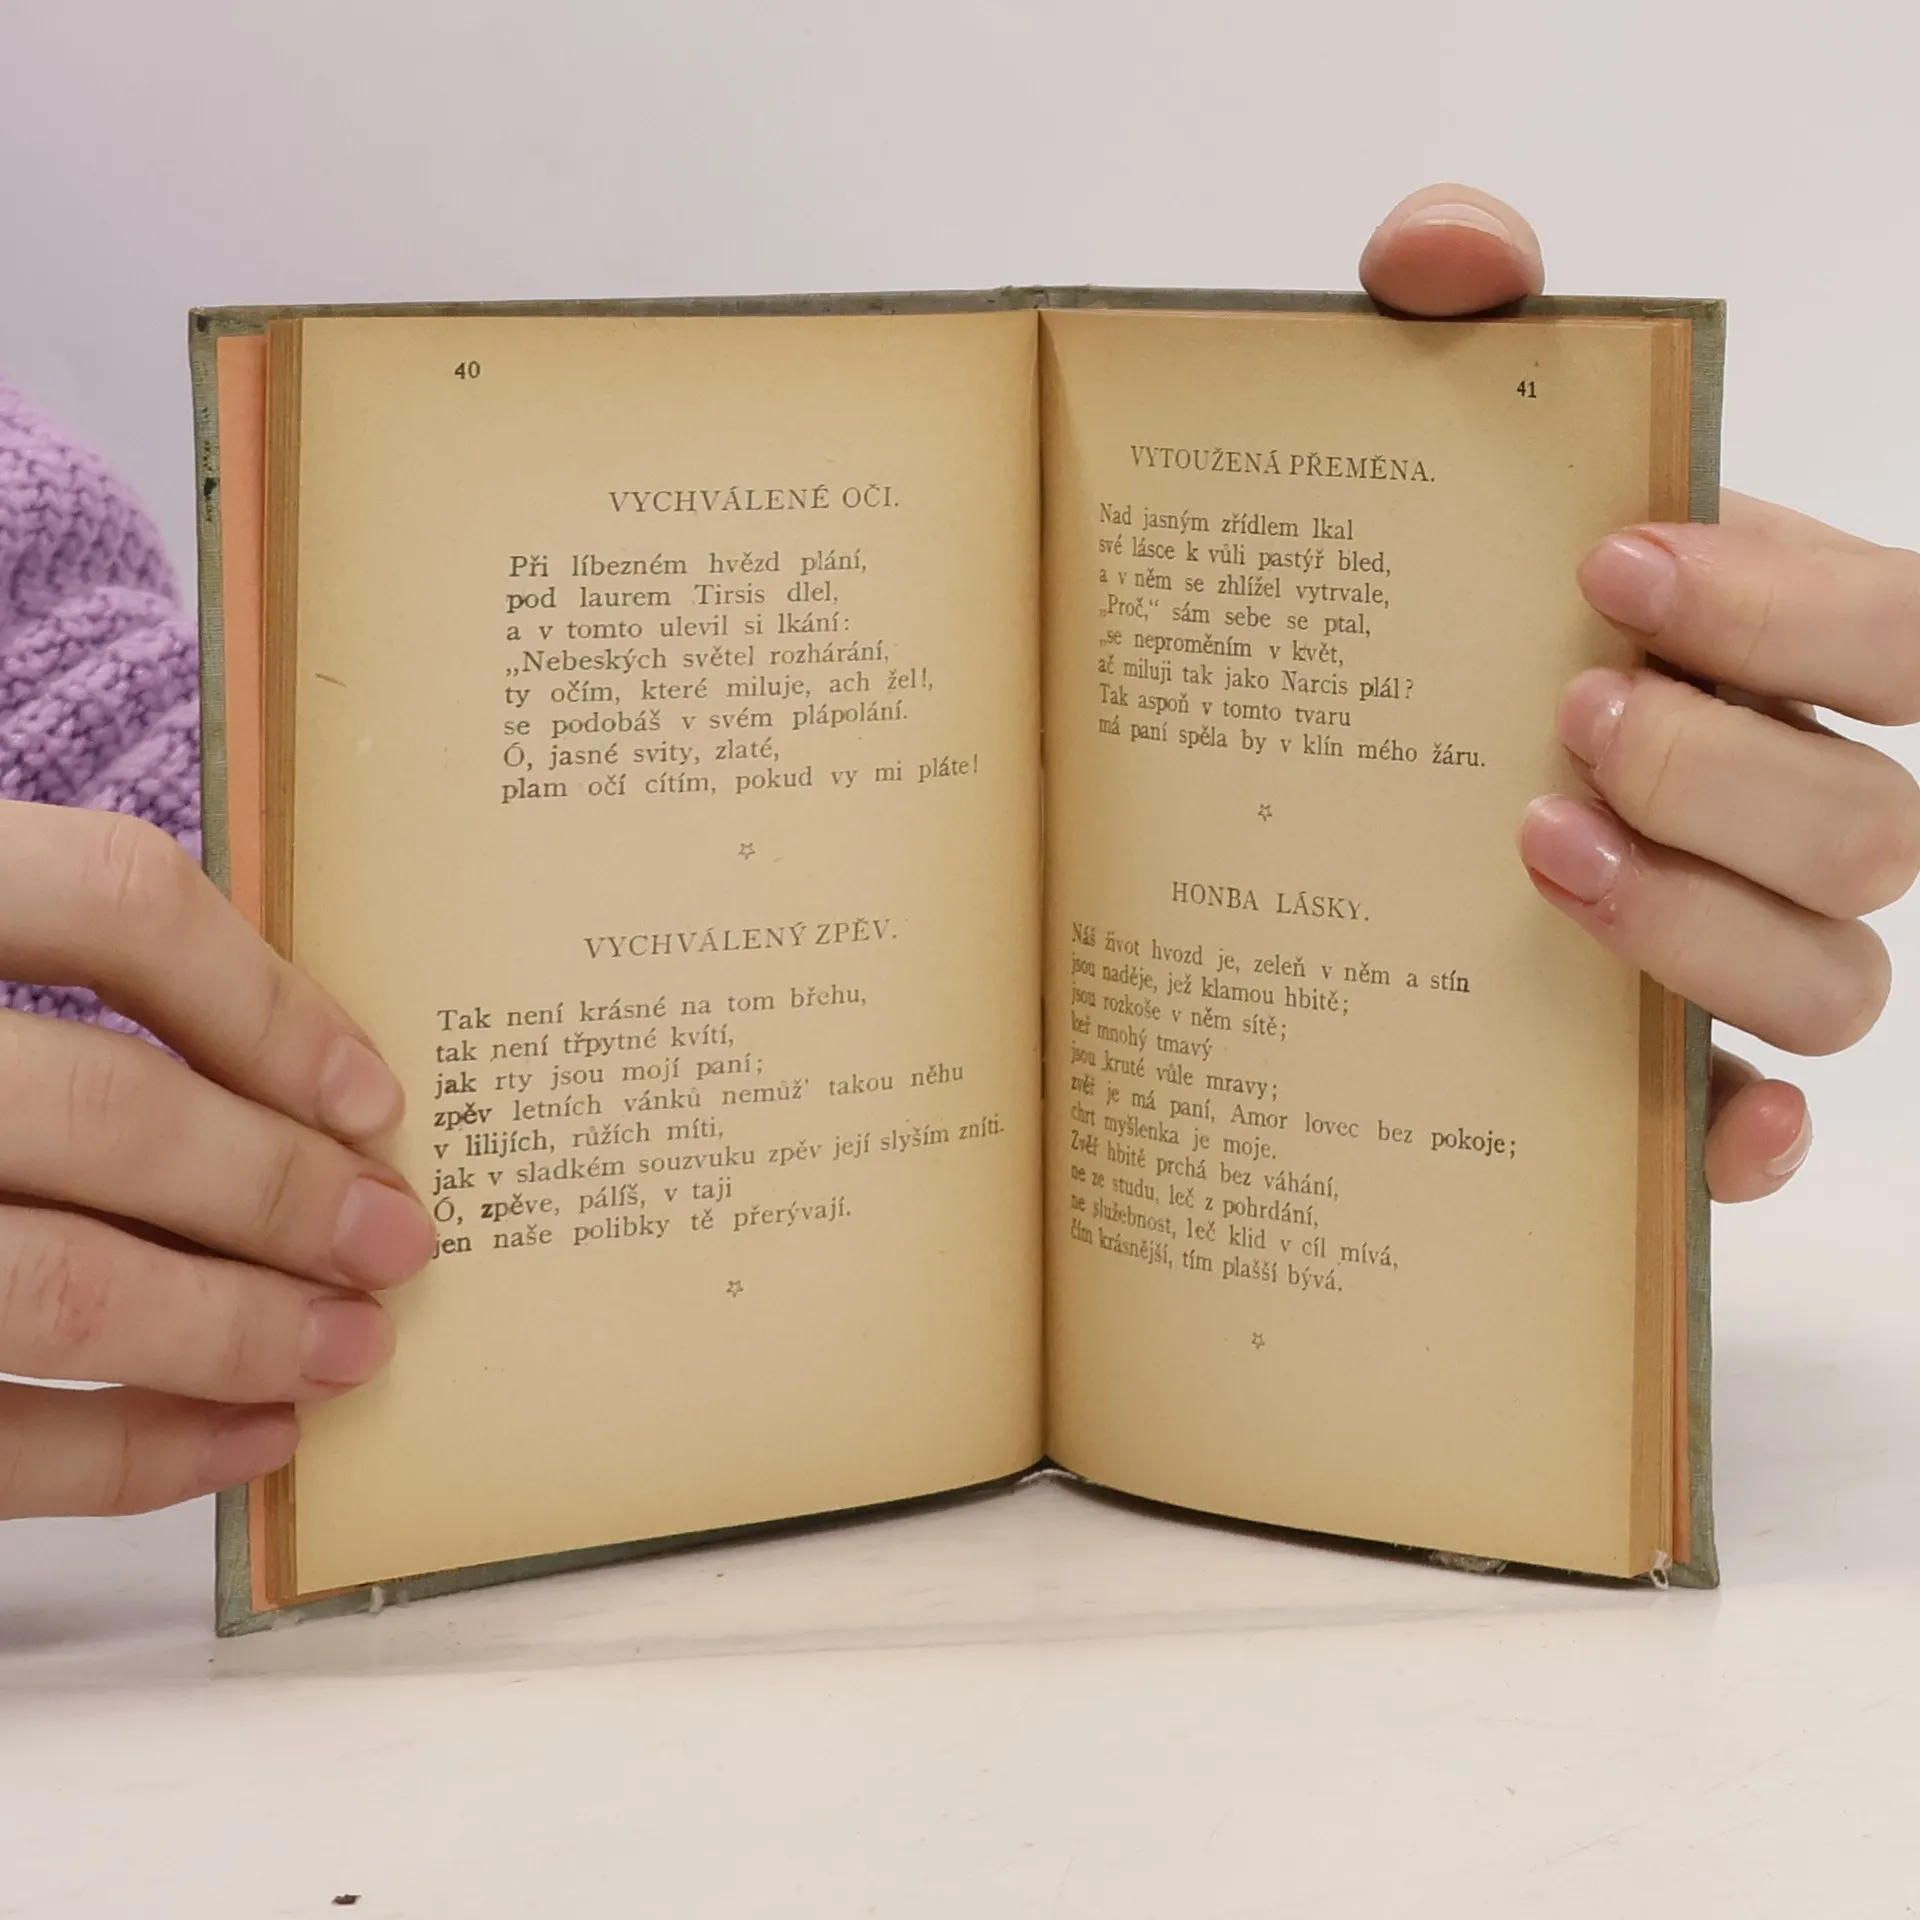 40
VYCHVÁLENÉ OČI.
Při líbezném hvězd plání,
pod laurem Tirsis dlel,
a v tomto ulevil si lkání:
„Nebeských světel rozhárání,
ty očím, které miluje, ach žel!,
se podobáš v svém plápolání.
Ó, jasné svity, zlaté,
plam očí cítím, pokud vy mi pláte!
VYCHVÁLENÝ ZPĚV.
Tak není krásné na tom břehu,
tak není třpytné kvítí,
jak rty jsou mojí paní;
zpěv letních vánků nemůž’ takou něhu
v lilijích, růžích míti,
jak v sladkém souzvuku zpěv její slyším zníti.
Ó, zpěve, pálíš, v taji
jen naše polibky tě přerývají.
41
VYTOUŽENÁ PŘEMĚNA.
Nad jasným zřídlem lkal
své lásce k vůli pastýř bled,
a v něm se zhlížel vytrvale,
„Proč,“ sám sebe se ptal,
„se neproměním v květ,
ač miluji tak jako Narcis plál?
Tak aspoň v tomto tvaru
má paní spěla by v klín mého žáru.
HONBA LÁSKY.
Náš život hvozd je, zeleň v něm a stín
jsou naděje, jež klamou hbitě;
jsou rozkoše v něm sítě;
keř mnohý tmavý
jsou kruté vůle mravy;
zvěř je má paní, Amor lovec bez pokoje;
chrt myšlenka je moje.
Zvěř hbitě prchá bez váhání,
ne ze studu, leč z pohrdání,
ne služebnost, leč klid v cíl mívá,
čím krásnější, tím plašší bývá.